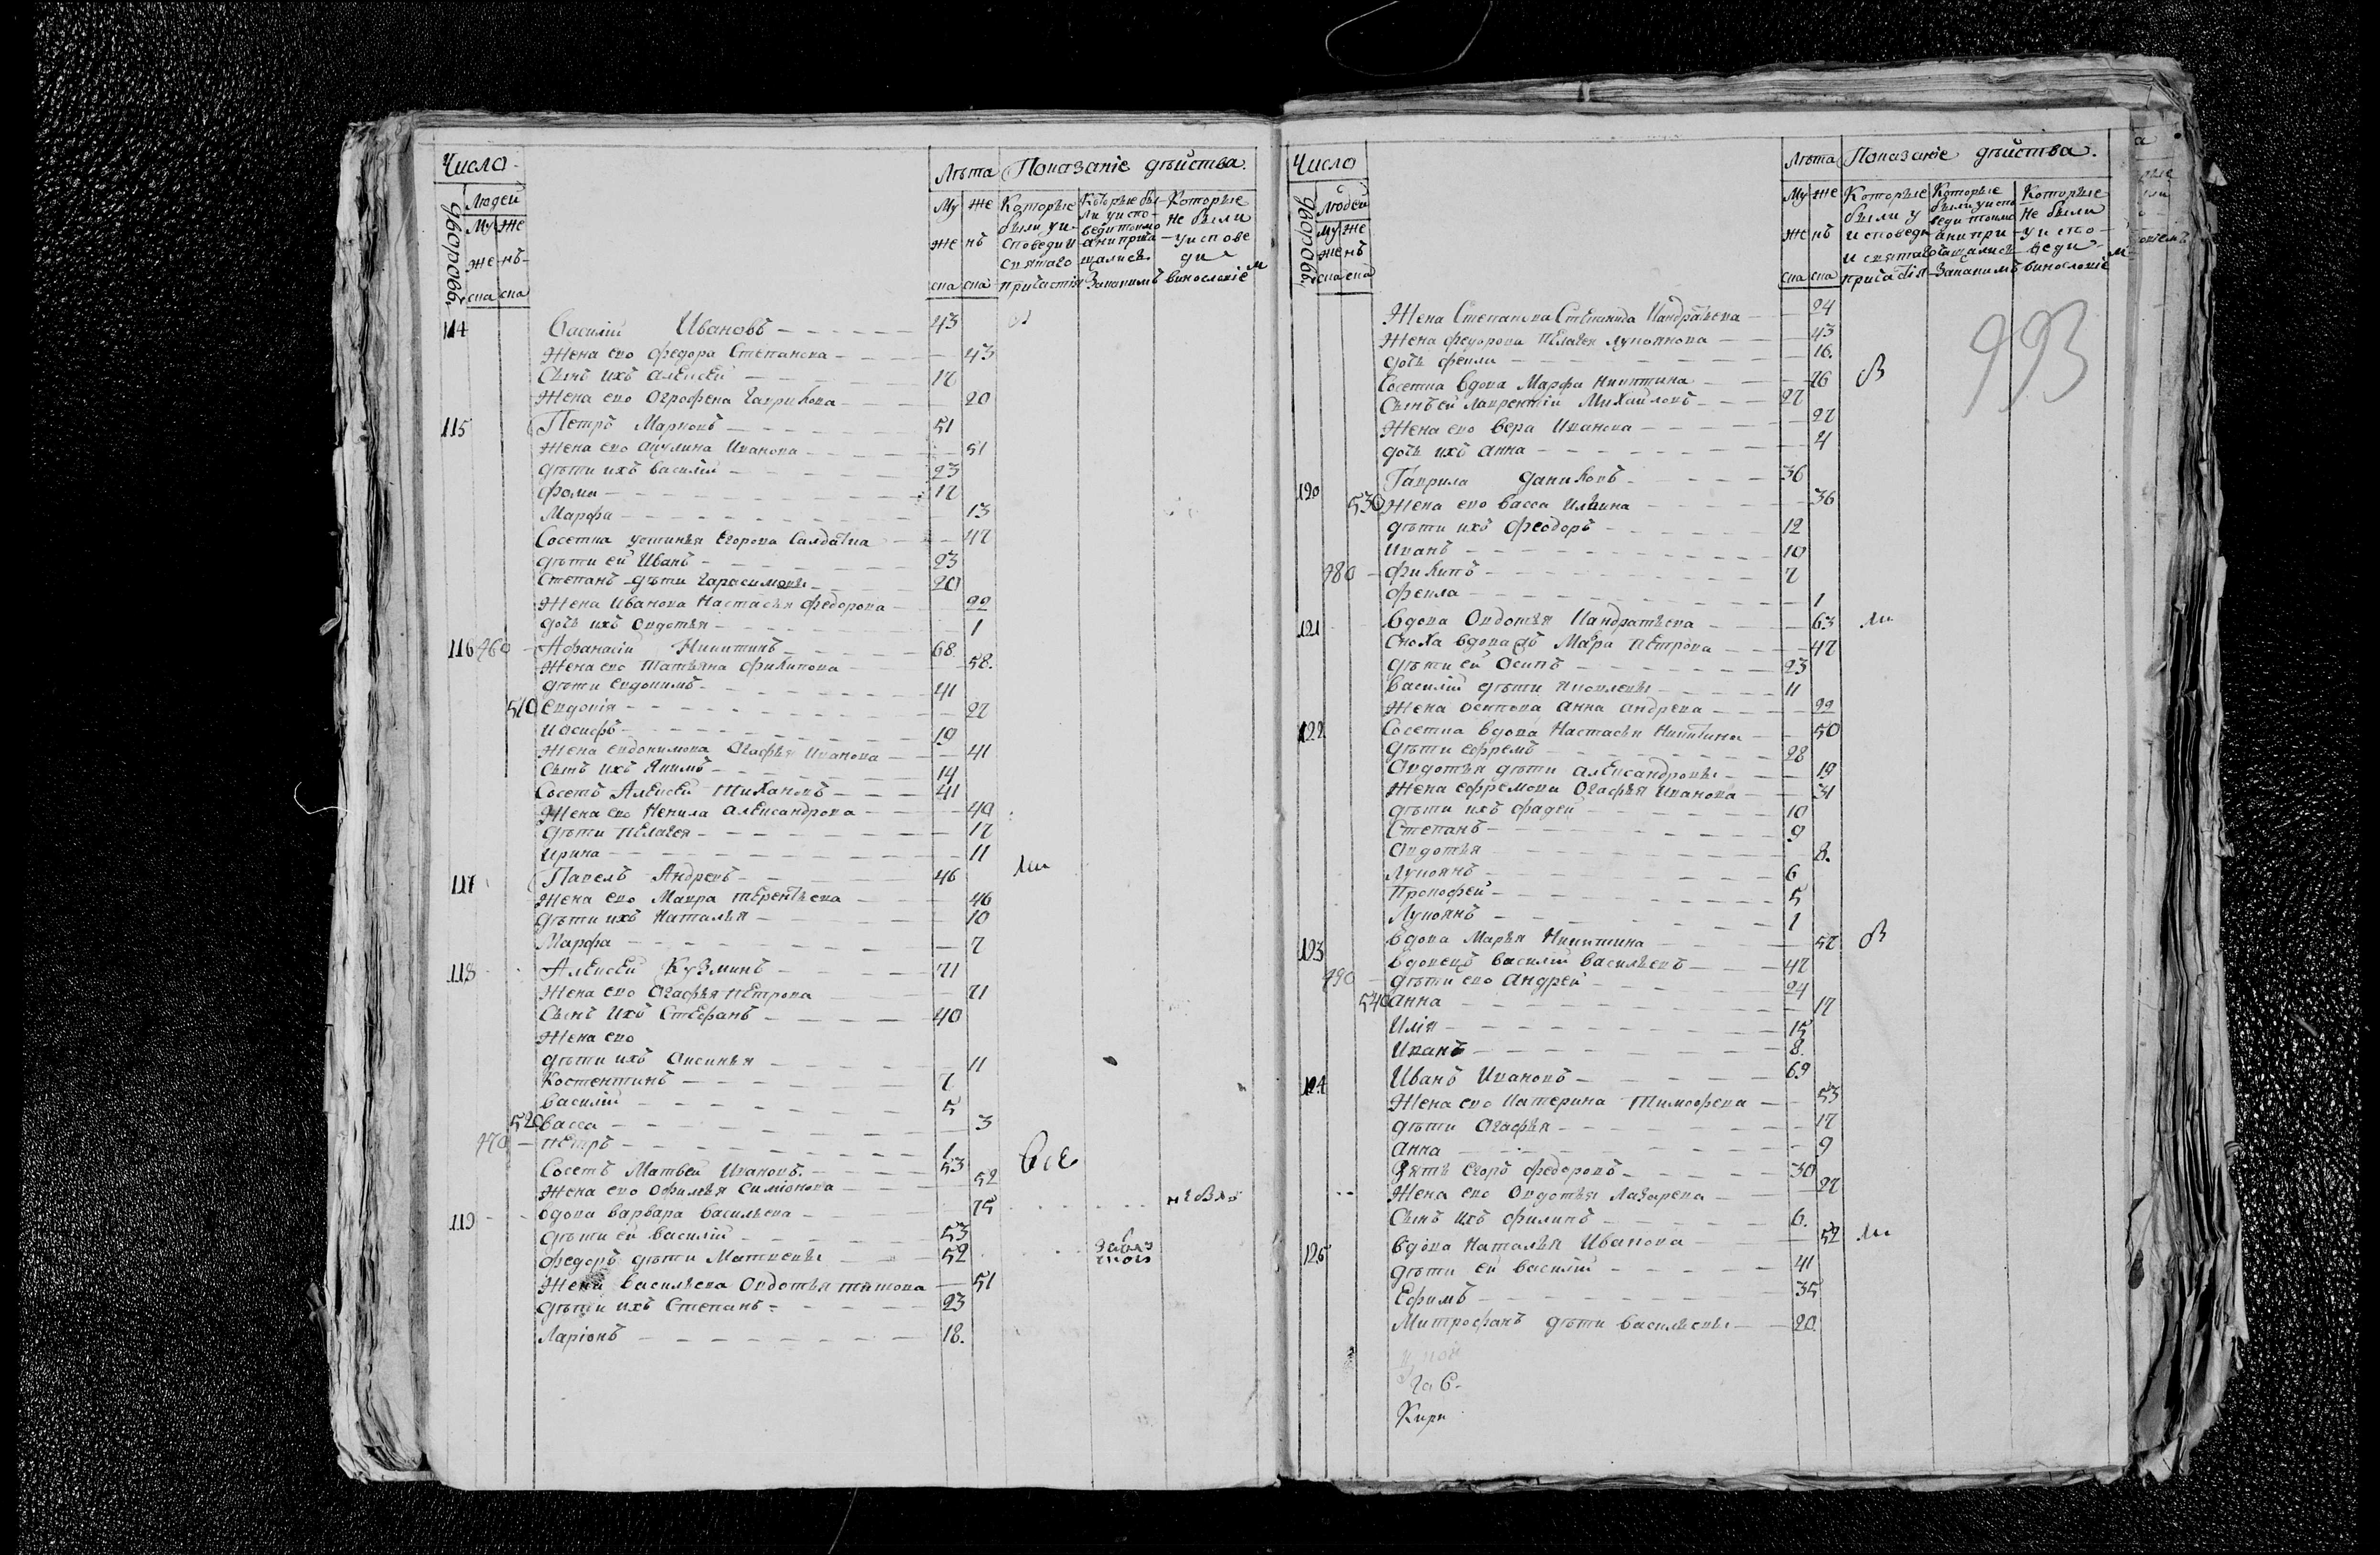 Число
Людей
дворовъ
Му же
же нъ
ска ска
Лѣта Показаніе дѣйства
Му же
же нъ
ска ска
Которые были у исповеди и святаго причастія
Которые были у исповеди токмо а не причащались
Которые не были у исповеди
114 Василій Ивановъ 43
Жена ево Федора Степанова 43
Сынъ ихъ алексей 17
Жена ево Огрофена Гаврилова 20
115 Петръ Марковъ 51
Жена ево акулина Иванова 51
дѣти ихъ василій 23
фома 17
Марфа 13
Сосетка устинья Егорова Салдатка 47
дѣти ей Иванъ 23
Степанъ дѣти Гарасимовы 20
Жена Иванова Настасья федорова 22
дочь ихъ Овдотья 1
116 460 Афанасій Никитинъ 68
Жена ево Татьяна филипова 58
дѣти евдокимъ 41
510 евдокія 27
иосифъ 19
Жена евдокимова Огафья Иванова 41
Сынъ ихъ Якимъ 14
Сосетъ Алексей Тихановъ 41
Жена ево Ненила александрова 40
дѣти пелагея 17
ирина 11
117 Павелъ Андревъ 46
Жена ево Мавра терентьева 46
дѣти ихъ Наталья 10
Марфа 7
118 Алексей Кузминъ 71
Жена ево Огафья петрова 71
Сынъ ихъ Стефанъ 40
Жена ево
дѣти ихъ Оксинья 11
Костентинъ 7
василій 5
520 васса 3
470 петръ 1
Сосетъ Матвей Ивановъ 53 все
Жена ево Офимья Симіонова 52
119 вдова варвара васильева 75
дѣти ей василій 53
федоръ дѣти Матвеевы 52
Жена васильева Овдотья титова 51
дѣти ихъ Степанъ 23
Ларіонъ 18
Число
Людей
дворовъ
Му же
же нъ
ска ска
Лѣта Показаніе дѣйства.
Му же
же нъ
ска ска
Которые были у исповеди и святаго причастія
Которые были у исповеди токмо а не причащались
Которые не были у исповеди
993
Жена Степанова Степанида Кандратьева 24
Жена федорова пелагея Лукоянова 43
дочь фекла 16
Сосетка вдова Марфа Никитина 76
Сынъ ей лаврентій Михайловъ 27
Жена ево вера Иванова 27
дочь ихъ анна 4
120 Гаврила даниловъ 36
530 Жена ево васса Ильина 36
дѣти ихъ феодоръ 12
Иванъ 10
480 филипъ 7
фекла 1
121 вдова Овдотья Кандратьева 63
Сноха вдова Мавра петрова 47
дѣти ей Осипъ 23
василій дѣти Яковлевы 11
Жена осипова анна андрева 22
122 Сосетка вдова Настасья Никитина 50
дѣти ефремъ 28
Овдотья дѣти александровы 19
Жена ефремова Огафья Иванова 31
дѣти ихъ фадей 10
Степанъ 9
Овдотья 8
Лукоянъ 6
Прокофей 5
Лукоянъ 1
123 вдова Марья Никитина 57
вдовецъ василій васильевъ 47
490 дѣти ево андрей 24
540 анна 17
Илія 15
Иванъ 8
124 Иванъ Ивановъ 69
Жена ево Катерина Тимофева 53
дѣти Огафья 17
анна 9
Зять егоръ федоровъ 30
Жена ево Овдотья Лазарева 27
Сынъ ихъ филипъ 6
125 вдова Наталья Иванова 52
дѣти ей василій 41
Ефимъ 35
Митрофанъ дѣти васильевы 20